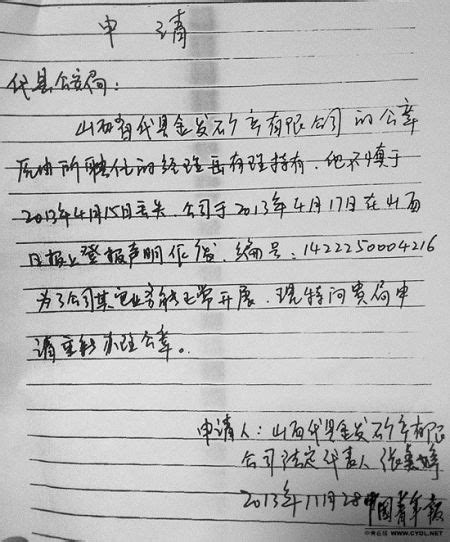 申 请
代县公安局：
山西省代县金发矿产有限公司的公章
原由所聘任的经理岳有理持有，他不慎于
2013年4月15日丢失，公司于2013年4月17日在山西
日报上登报声明作废，编号：1422250004216
为了公司其它业务能正常开展，现特向贵局申
请重新办理公章。
申请人：山西代县金发矿产有限
公司法定代表人 张
2013年11月28
中国青年报
中青在线 WWW.CYOL.NET